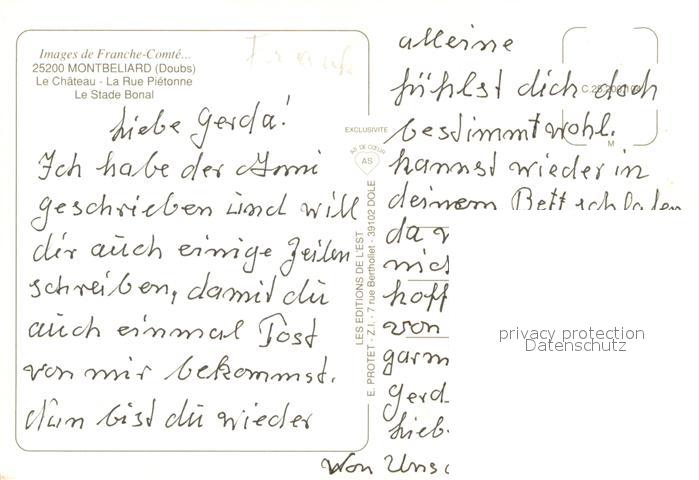 Images de Franche-Comté...
25200 MONTBELIARD (Doubs)
Le Château - La Rue Piétonne
Le Stade Bonal
Liebe Gerda!
Ich habe der Anni
geschrieben und will
dir auch einige Zeilen
schreiben, damit du
auch einmal Post
von mir bekommst.
Nun bist du wieder
EXCLUSIVITE
AS DE CŒUR
AS
LES EDITIONS DE L'EST
E. PROTET - Z.I. - 7 rue Berthollet - 39102 DOLE
alleine
fühlst dich doch
bestimmt wohl.
kannst wieder in
deinem Bett schlafen
da
nich
hoff
von
garn
Gerd
Lieb
von Uns
M
privacy protection
Datenschutz